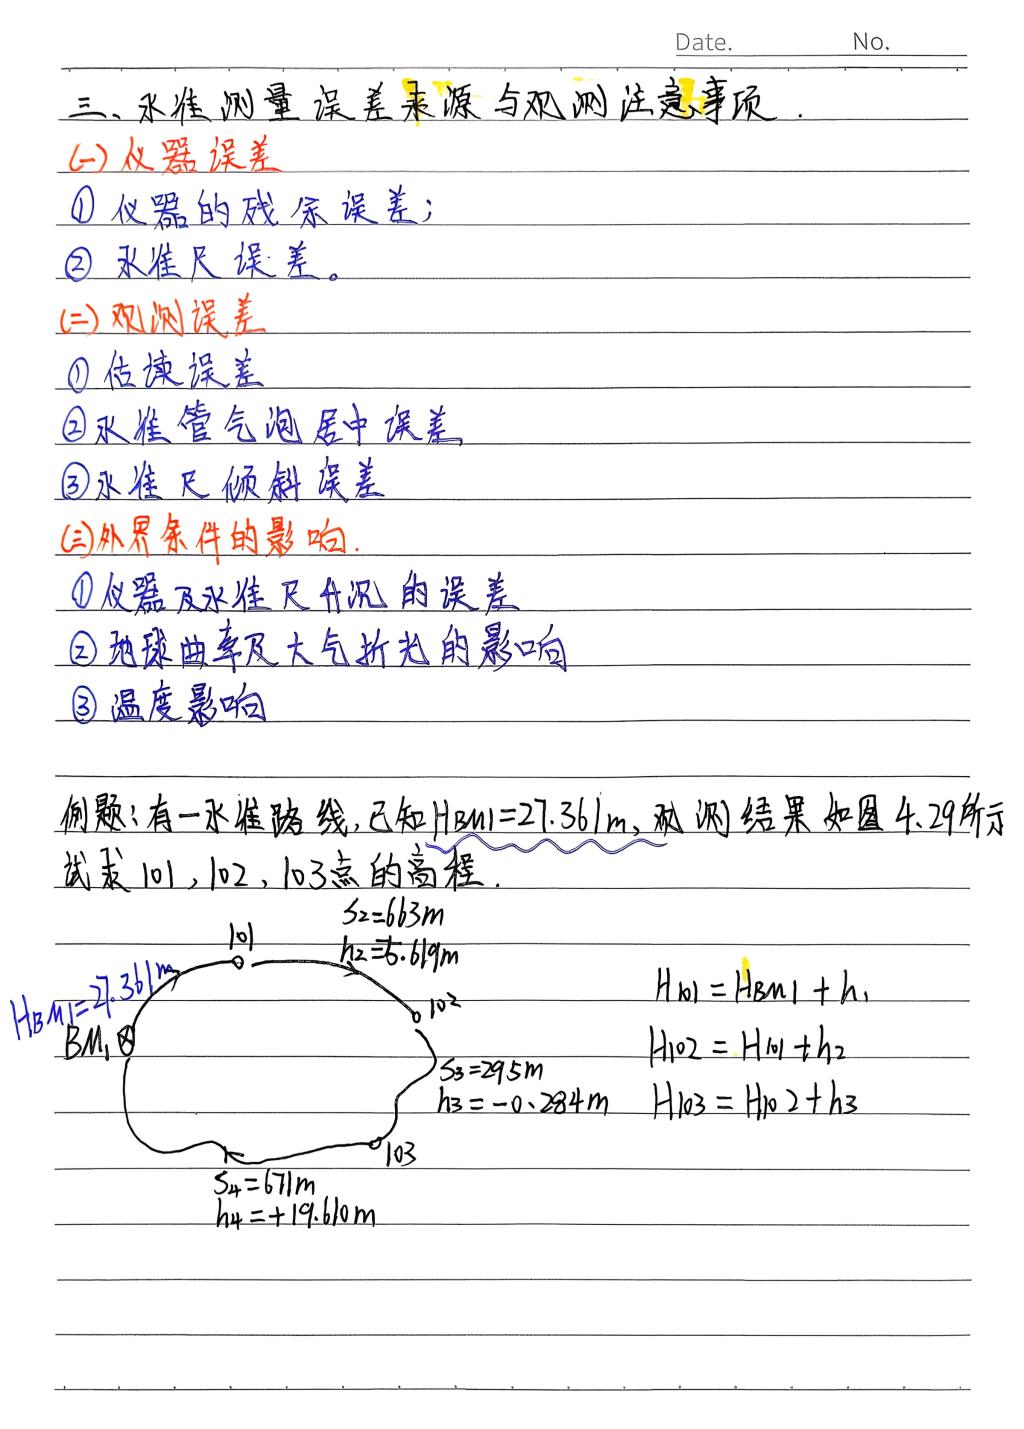 Date. No.
三、水准测量误差来源与观测注意事项.
(一)仪器误差
①仪器的残余误差;
②水准尺误差。
(二)观测误差
①估读误差
②水准管气泡居中误差
③水准尺倾斜误差
(三)外界条件的影响.
①仪器及水准尺升沉的误差
②地球曲率及大气折光的影响
③温度影响
例题:有一水准路线,已知HBM1=27.361m,观测结果如图4.29所示
试求101,102、103点的高程.
S2=663m
h2=5.619m
101
HBM1=27.361m
BM1
102
S3=295m
h3=-0.284m
103
S4=671m
h4=+19.610m
H101=HBM1+h1
H102=H101+h2
H103=H102+h3